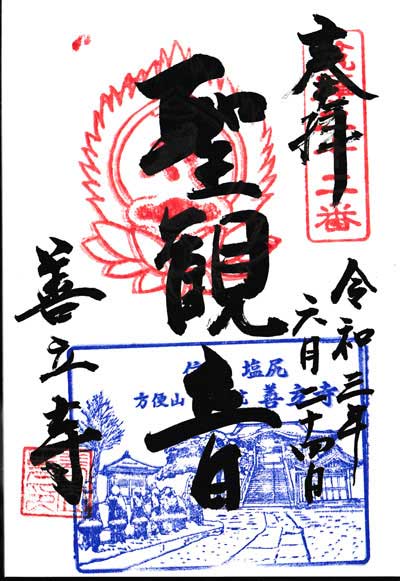 奉拝
二番
聖観音
令和三年
六月二十四日
善立寺
塩尻
方便山 善立寺